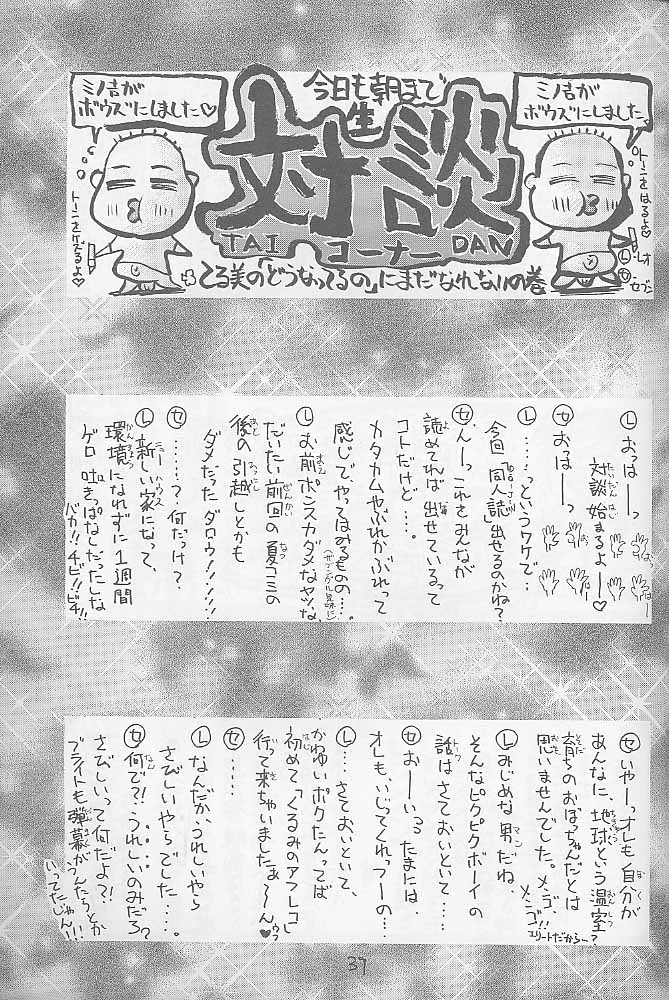 今日も朝まで
生
対談
TAI コーナー DAN
てる美の「どうなってるの」にまだなれないの巻
ミノ吉が
ボウズにしました。
トーンをはるよ
レオ
セブン
ミノ吉が
ボウズにしました♡
トーンをケズるよ♡
Ⓛおっはーっ
対談始まるよー♡
㋝おっはーっ
Ⓛ……っというワケで…
今回「同人誌」出せるのかね?
㋝んーっこれをみんなが
読めてれば出せているって
コトだけど…。
カタカムやぶれかぶれって
感じで、やってはみるものの…。
Ⓛお前ポンスカダメなヤツな、
だいたい前回の夏コミの
後の引越しとかも
ダメだったダロウ!!!!!
㋝……?何だっけ?
Ⓛ新しい家になって、
環境になれずに1週間
ゲロ吐きっぱなしだったしな
バカ!!チビ!!ビチ!!
㋝いやーっオレも自分が
あんなに、地球という温室
育ちのおぼっちゃんだとは
思いませんでした。メンゴ
メンゴ!!
エリートだからー?
Ⓛみじめな男だね、
そんなピクピクボーイの
話はさておいといて…。
㋝おーいっ、たまには、
オレも、いじってくれっつーの…。
Ⓛ…さておいといて、
かわゆいボクたんってば
初めて「くるみのアフレコ」
行って来ちゃいましたぁ～～ん♡ウフ
㋝……
Ⓛなんだか、うれしいやら
さびしいやらでした……。
㋝何で?!うれしいのみだろ?
さびしいって何だよ?!
ブライトも弾幕がうんたらとか
いってたじゃん!!
37